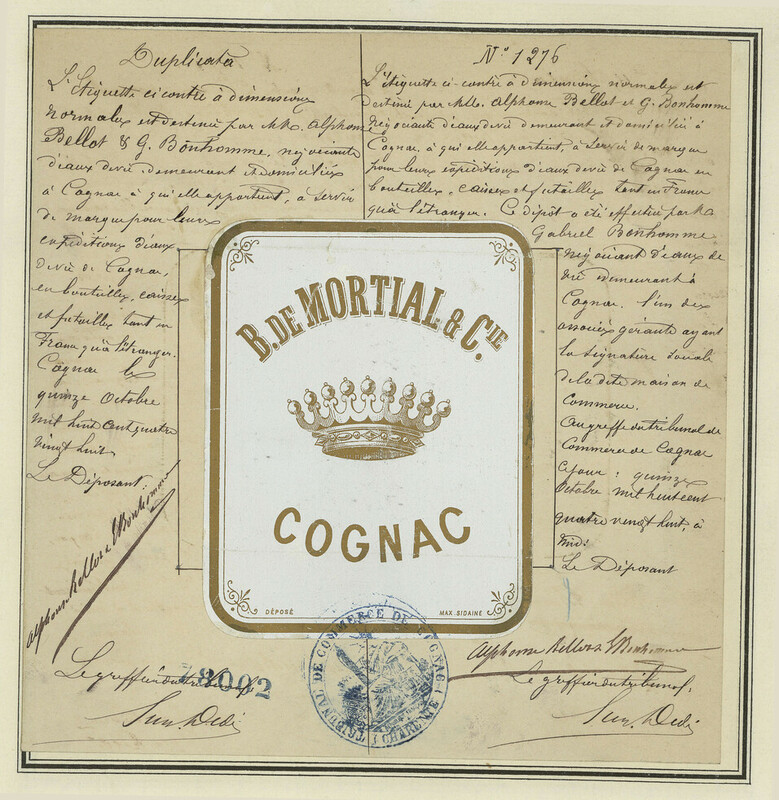 Duplicata
L'Etiquette ci contre à dimensions
normales est destinée par MM. Alphonse
Bellot & G. Bonhomme, négociants
d'eaux de vie demeurant et domiciliés
à Cognac à qui elle appartient, à servir
de marque pour leurs
expéditions d'eaux
de vie de Cognac,
en bouteilles, caisses
et futailles tant en
France qu'à l'étranger.
Cognac le
quinze Octobre
mil huit cent quatre
vingt huit
Le Déposant
Alphonse Bellot & Bonhomme
Le greffier du tribunal
N° 1276
L'étiquette ci-contre à dimensions normales est
destinée par MM. Alphonse Bellot et G. Bonhomme
négociants d'eaux de vie demeurant et domiciliés à
Cognac, à qui elle appartient, à servir de marque
pour leurs expéditions d'eaux de vie de Cognac en
bouteilles, caisses et futailles tant en France
qu'à l'étranger. Ce dépôt a été effectué par M.
Gabriel Bonhomme
négociant d'eaux de
vie demeurant à
Cognac. l'un des
associés gérants ayant
la signature sociale
de la dite maison de
Commerce.
Au greffe du tribunal de
Commerce de Cognac
ce jour : quinze
Octobre mil huit cent
quatre vingt huit, à
midi
Le Déposant
Alphonse Bellot & Bonhomme
Le greffier du tribunal
B. DE MORTIAL & CIE.
COGNAC
DÉPOSÉ
MAX SIDAINE
TRIBUNAL DE COMMERCE DE COGNAC (CHARENTE)